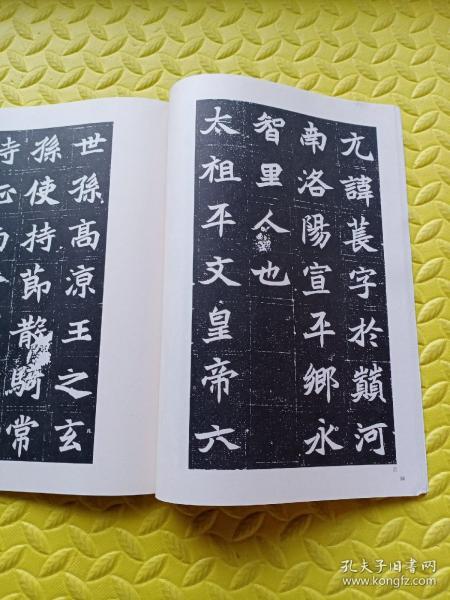 元諱萇字於巔河
南洛陽宣平鄉永
智里人也
太祖平文皇帝六
世孫高涼王之玄
孫使持節散騎常
孔夫子旧书网
www.kongfz.com